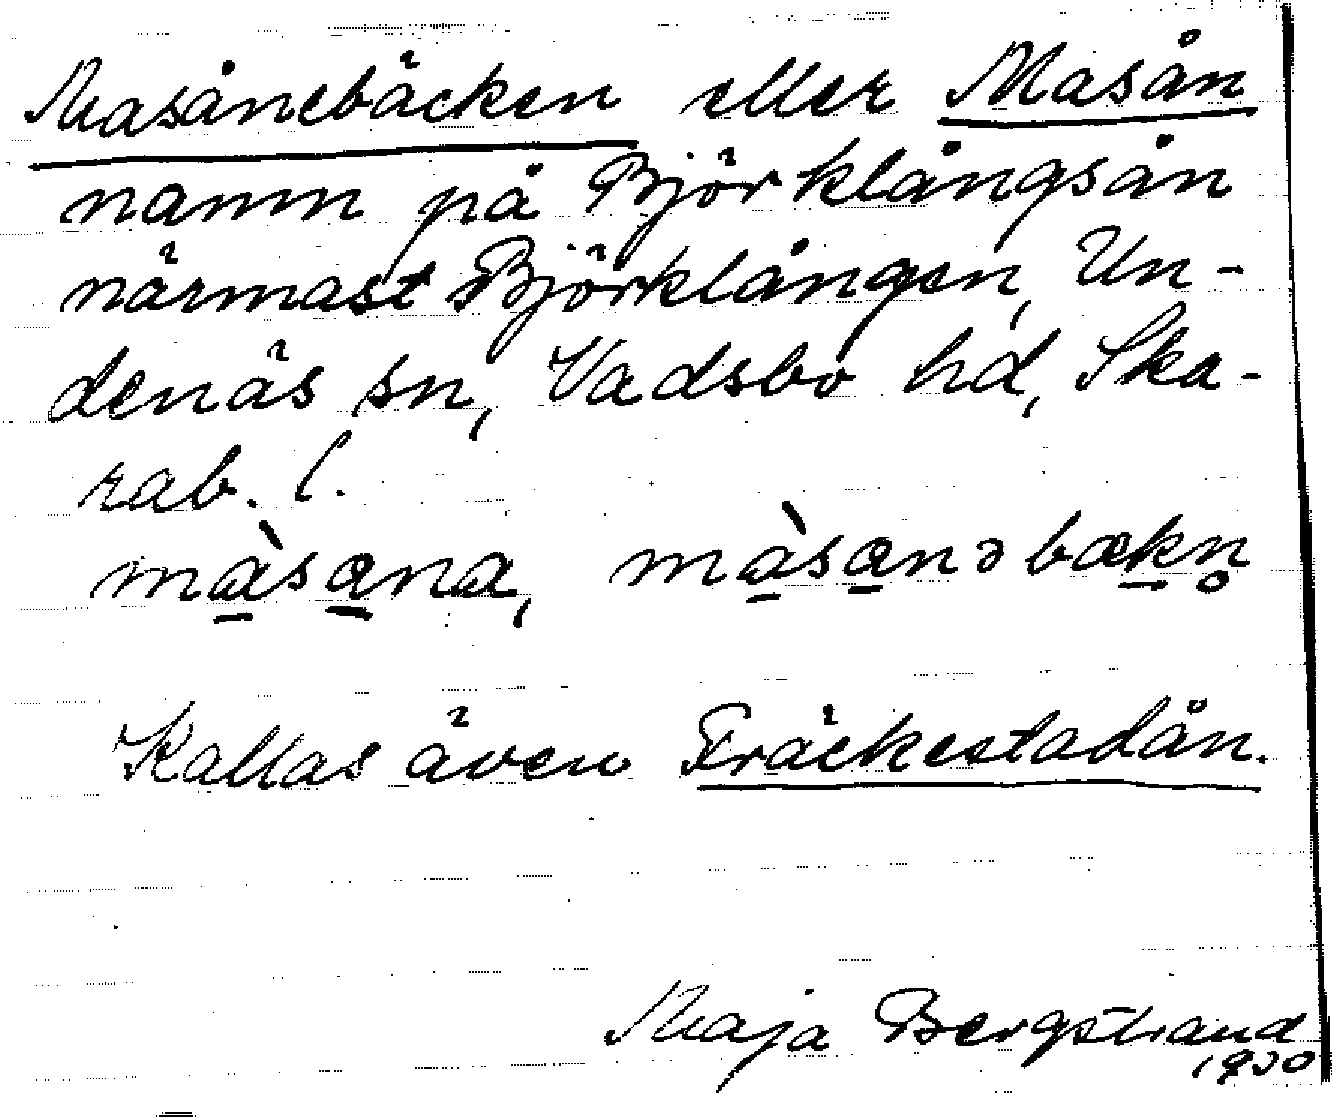 Masånebäcken eller Masån
namn på Björklångsån
närmast Björklången, Un-
denäs sn, Vadsbo hd, Ska-
rab. l.
màsana, màsanəbækn̥
Kallas även Fräckestadån.
Maja Bergstrand
1930